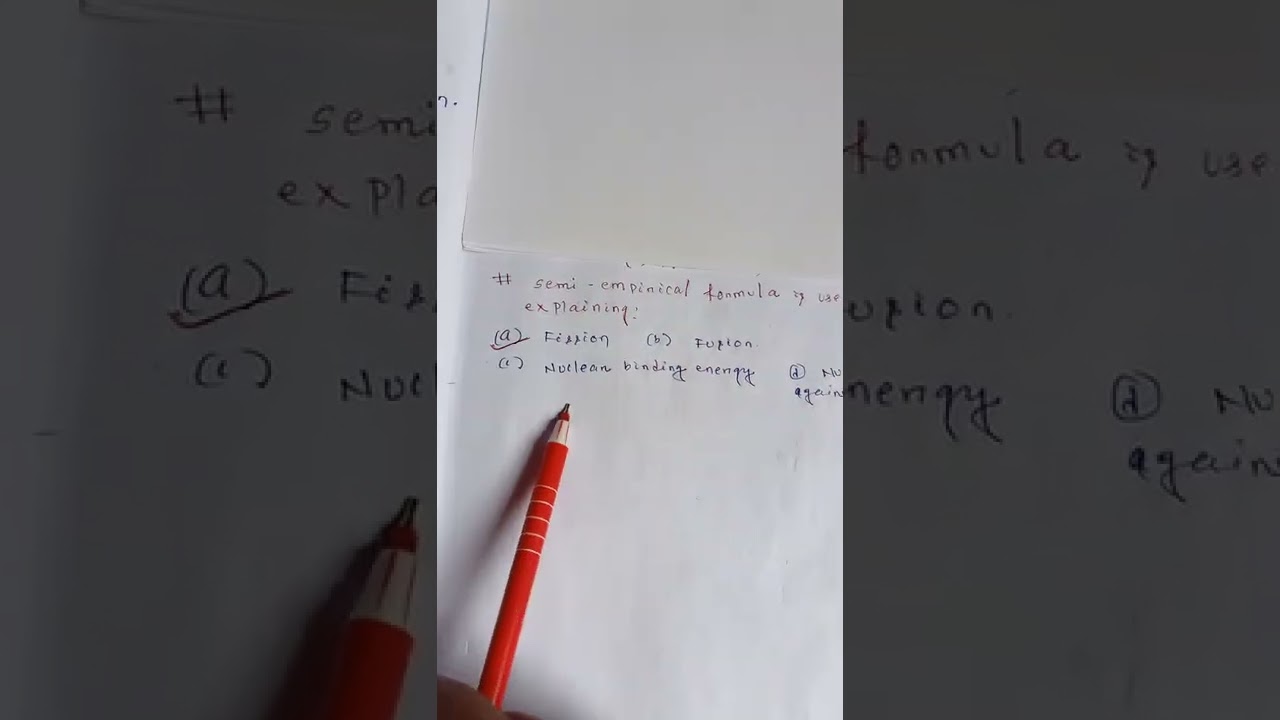 # semi-empirical formula is use
explaining:
(a) Fission (b) Fusion.
(c) Nuclear binding energy (d) Nu
again